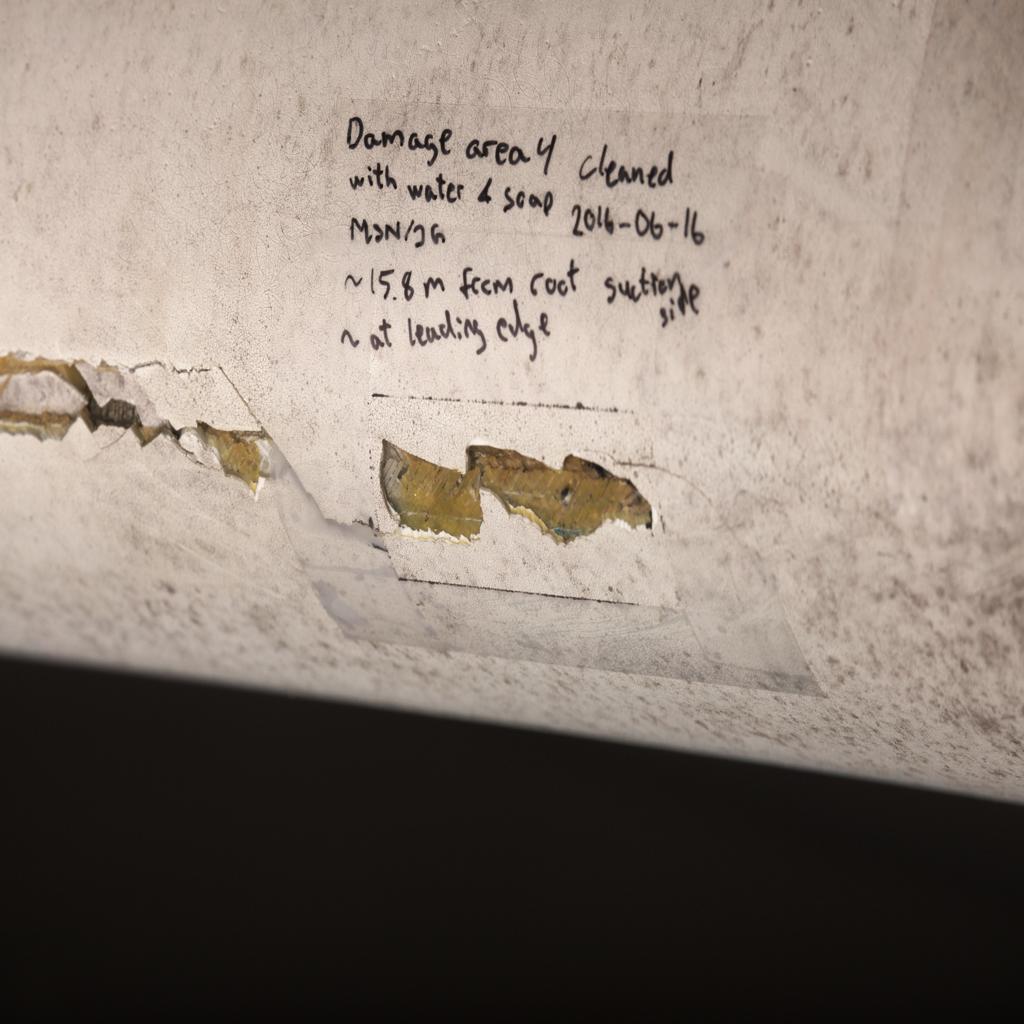 Damage area 4 cleaned
with water & soap 2016-06-16
MSN/JG
~15.8 m from root suction side
~ at leading edge